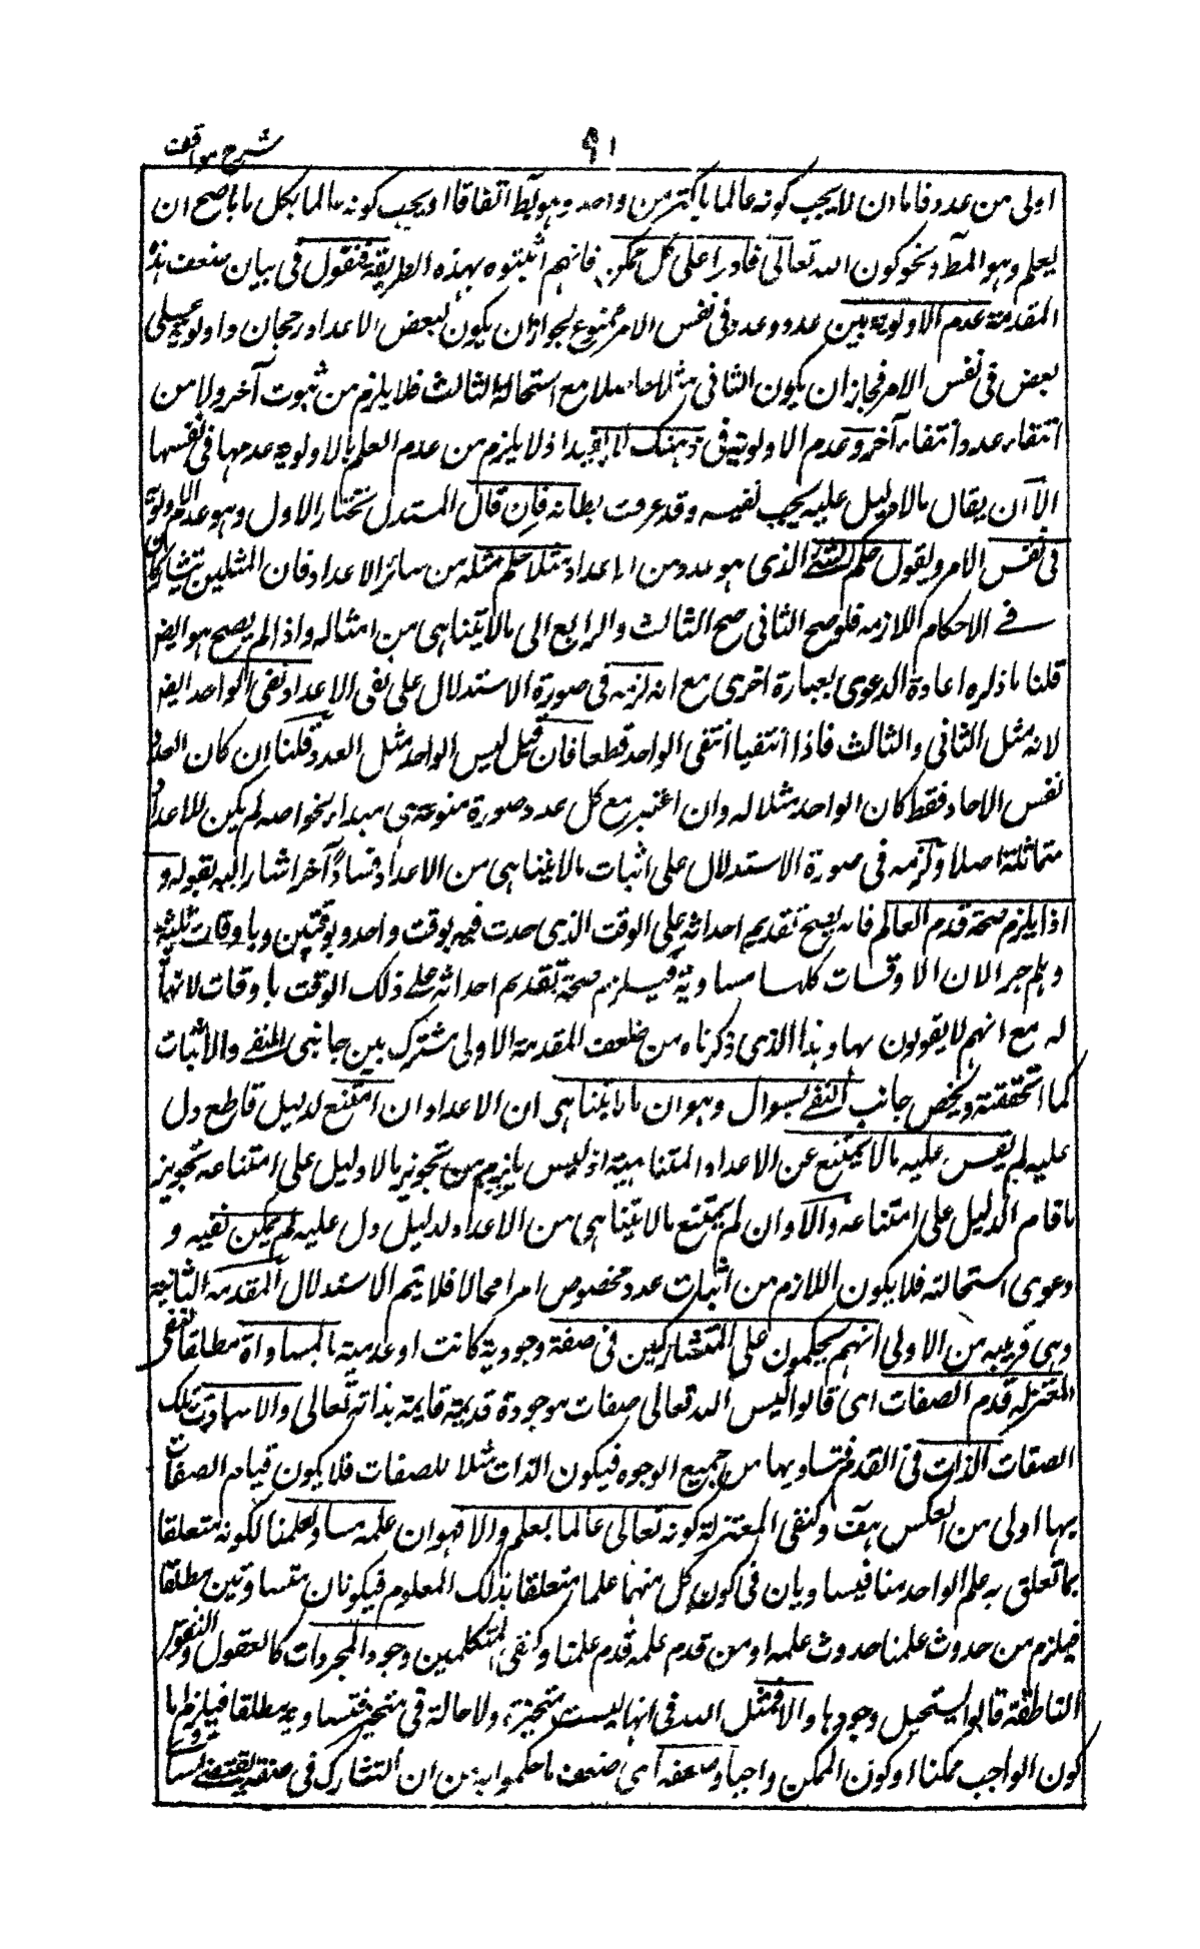 شرح مواقف ٩١
اولى من عدد فاما ان لا يجب كونه عالما باكثر من واحد وهو بط اتفاقا او يجب كونه عالما بكل ما صح ان
يعلم وهو المط ونحو كون الله تعالى قادرا على كل ممكن فانهم اثبتوه بهذه الطريقة فنقول فى بيان ضعف هذه
المقدمة عدم الاولوية بين عدد وعدد فى نفس الامر ممنوع لجواز ان يكون لبعض الاعداد رجحان واولوية على
بعض فى نفس الامر فجاز ان يكون الثانى مثلا حاصلا مع استحالة الثالث فلا يلزم من ثبوت آخر ولا من
انتفاء عدد انتفاء آخر وعدم الاولوية فى ذهنك لا يفيد اذ لا يلزم من عدم العلم بالاولوية عدمها فى نفسها
الا ان يقال ما لا دليل عليه يجب نفيه وقد عرفت بطلانه فان قال المستدل نختار الاول وهو عدم الاولوية
فى نفس الامر ونقول حكم الشئ الذى هو عدد من الاعداد مثلا حكم مثله من سائر الاعداد فان المثلين يتشاركان
فى الاحكام اللازمة فلو صح الثانى صح الثالث والرابع الى ما لا يتناهى من امثاله واذا لم يصح هو ايضا
قلنا ما ذكره اعادة الدعوى بعبارة اخرى مع انه لزمه فى صورة الاستدلال على نفى الاعداد نفى الواحد ايضا
لانه مثل الثانى والثالث فاذا انتفيا انتفى الواحد قطعا فان قيل ليس الواحد مثل العدد قلنا ان كان العدد
نفس الاحاد فقط كان الواحد مثلا له وان اعتبر مع كل عدد صورة منوعة هى مبداء لخواصه لم يكن للاعداد
متماثلة اصلا ولزمه فى صورة الاستدلال على اثبات ما لا يتناهى من الاعداد فسادا آخر اشار اليه بقوله و
اذا يلزم صحة قدم العالم فانه يصح تقديم احداثه على الوقت الذى حدث فيه بوقت واحد وبوقتين وباوقات ثلثة
وهلم جرا لان الاوقات كلها متساوية فيلزم صحة تقديم احداثه على ذلك الوقت باوقات لا نهاية
له مع انهم لا يقولون بها وهذا الذى ذكرناه من ضعف المقدمة الاولى مشترك بين جانبى النفى والاثبات
كما تحققته ويخص جانب النفى بسوال وهو ان ما لا يتناهى ان الاعداد ان امتنع لدليل قاطع دل
عليه لم يقس عليه ما لا يمتنع عن الاعداد المتناهية اذ ليس يلزم من تجويز ما لا دليل على امتناعه تجويز
ما قام الدليل على امتناعه والا وان لم يمتنع ما لا يتناهى من الاعداد لدليل دل عليه لم يمكن نفيه و
دعوى استحالته فلا يكون اللازم من اثبات عدد مخصوص امرا محالا فلا يتم الاستدلال المقدمة الثانية
وهى قريبة من الاولى انهم يحكمون على المتشاركين فى صفة وجودية كانت او عدمية بالمساواة مطلقا كنفى
المعتزلة قدم الصفات اى قالوا ليس لله تعالى صفات موجودة قديمة قايمة بذاته تعالى والا ساوت تلك
الصفات الذات فى القدم فتساويها من جميع الوجوه فيكون الذات مثلا للصفات فلا يكون قيام الصفات
بها اولى من العكس هف وكنفى المعتزلة كونه تعالى عالما بعلم والا فهو ان علمه مساو لعلمنا لكونه متعلقا
بما تعلق به علم الواحد منا فيتساويان فى كون كل منهما علما متعلقا بذلك المعلوم فيكونان متساويين مطلقا
فيلزم من حدوث علمنا حدوث علمه او من قدم علمه قدم علمنا وكنفى المتكلمين وجود المجردات كالعقول والنفوس
الناطقة قالوا يستحيل وجودها والا فمثل الله فى انها ليست متحيزة ولا حالة فى متحيز فتساويه مطلقا فيلزم اما
كون الواجب ممكنا او كون الممكن واجبا وضعفه اى ضعف ما حكموا به من ان التشارك فى صفة يقتضى المساواة